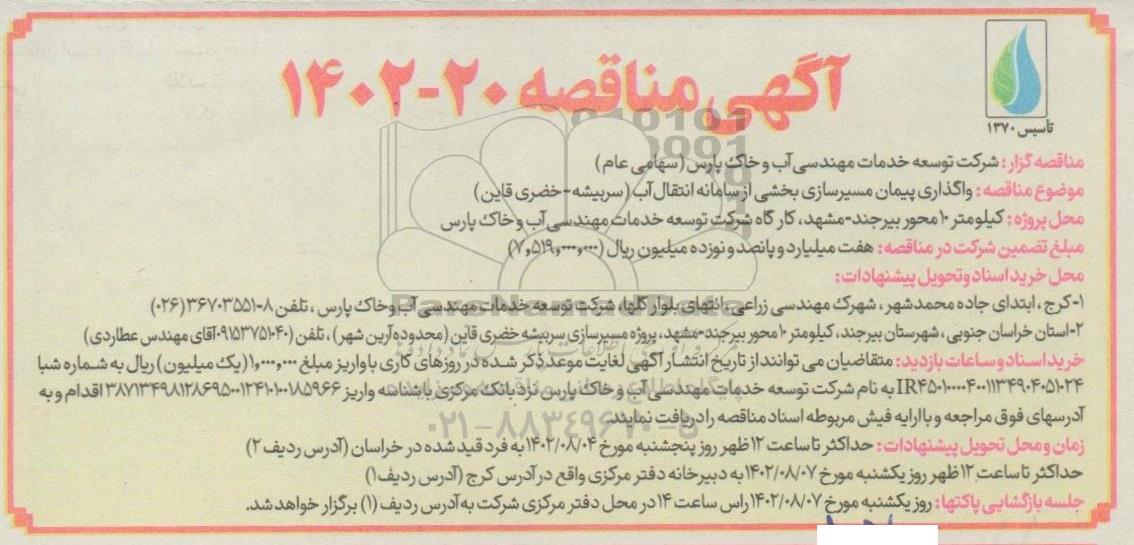 آگهی مناقصه ۲۰-۱۴۰۲
تأسیس ۱۳۷۰
مناقصه گزار: شرکت توسعه خدمات مهندسی آب و خاک پارس (سهامی عام)
موضوع مناقصه: واگذاری پیمان مسیرسازی بخشی از سامانه انتقال آب (سربیشه-خضری قاین)
محل پروژه: کیلومتر ۱۰ محور بیرجند-مشهد، کارگاه شرکت توسعه خدمات مهندسی آب و خاک پارس
مبلغ تضمین شرکت در مناقصه: هفت میلیارد و پانصد و نوزده میلیون ریال (۷,۵۱۹,۰۰۰,۰۰۰)
محل خرید اسناد و تحویل پیشنهادات:
۱-کرج، ابتدای جاده محمدشهر، شهرک مهندسی زراعی، انتهای بلوار گلها، شرکت توسعه خدمات مهندسی آب و خاک پارس، تلفن ۸-۳۶۷۰۳۵۵۱ (۰۲۶)
۲-استان خراسان جنوبی، شهرستان بیرجند، کیلومتر ۱۰ محور بیرجند-مشهد، پروژه مسیرسازی سربیشه خضری قاین (محدوده آرین شهر)، تلفن (۰۹۱۵۳۷۵۱۰۴۰ آقای مهندس عطاردی)
خرید اسناد و ساعات بازدید: متقاضیان می توانند از تاریخ انتشار آگهی لغایت موعد ذکر شده در روزهای کاری با واریز مبلغ ۱,۰۰۰,۰۰۰ (یک میلیون) ریال به شماره شبا
به نام شرکت توسعه خدمات مهندسی آب و خاک پارس نزد بانک مرکزی با شناسه واریز اقدام و به
آدرسهای فوق مراجعه و با ارایه فیش مربوطه اسناد مناقصه را دریافت نمایند.
زمان و محل تحویل پیشنهادات: حداکثر تا ساعت ۱۲ ظهر روز پنجشنبه مورخ ۱۴۰۲/۰۸/۰۴ به فرد قید شده در خراسان (آدرس ردیف ۲)
حداکثر تا ساعت ۱۲ ظهر روز یکشنبه مورخ ۱۴۰۲/۰۸/۰۷ به دبیرخانه دفتر مرکزی واقع در آدرس کرج (آدرس ردیف ۱)
جلسه بازگشایی پاکتها: روز یکشنبه مورخ ۱۴۰۲/۰۸/۰۷ راس ساعت ۱۴ در محل دفتر مرکزی شرکت به آدرس ردیف (۱) برگزار خواهد شد.
۰۲۱-۸۸۳۴۹۶۷۰-۵